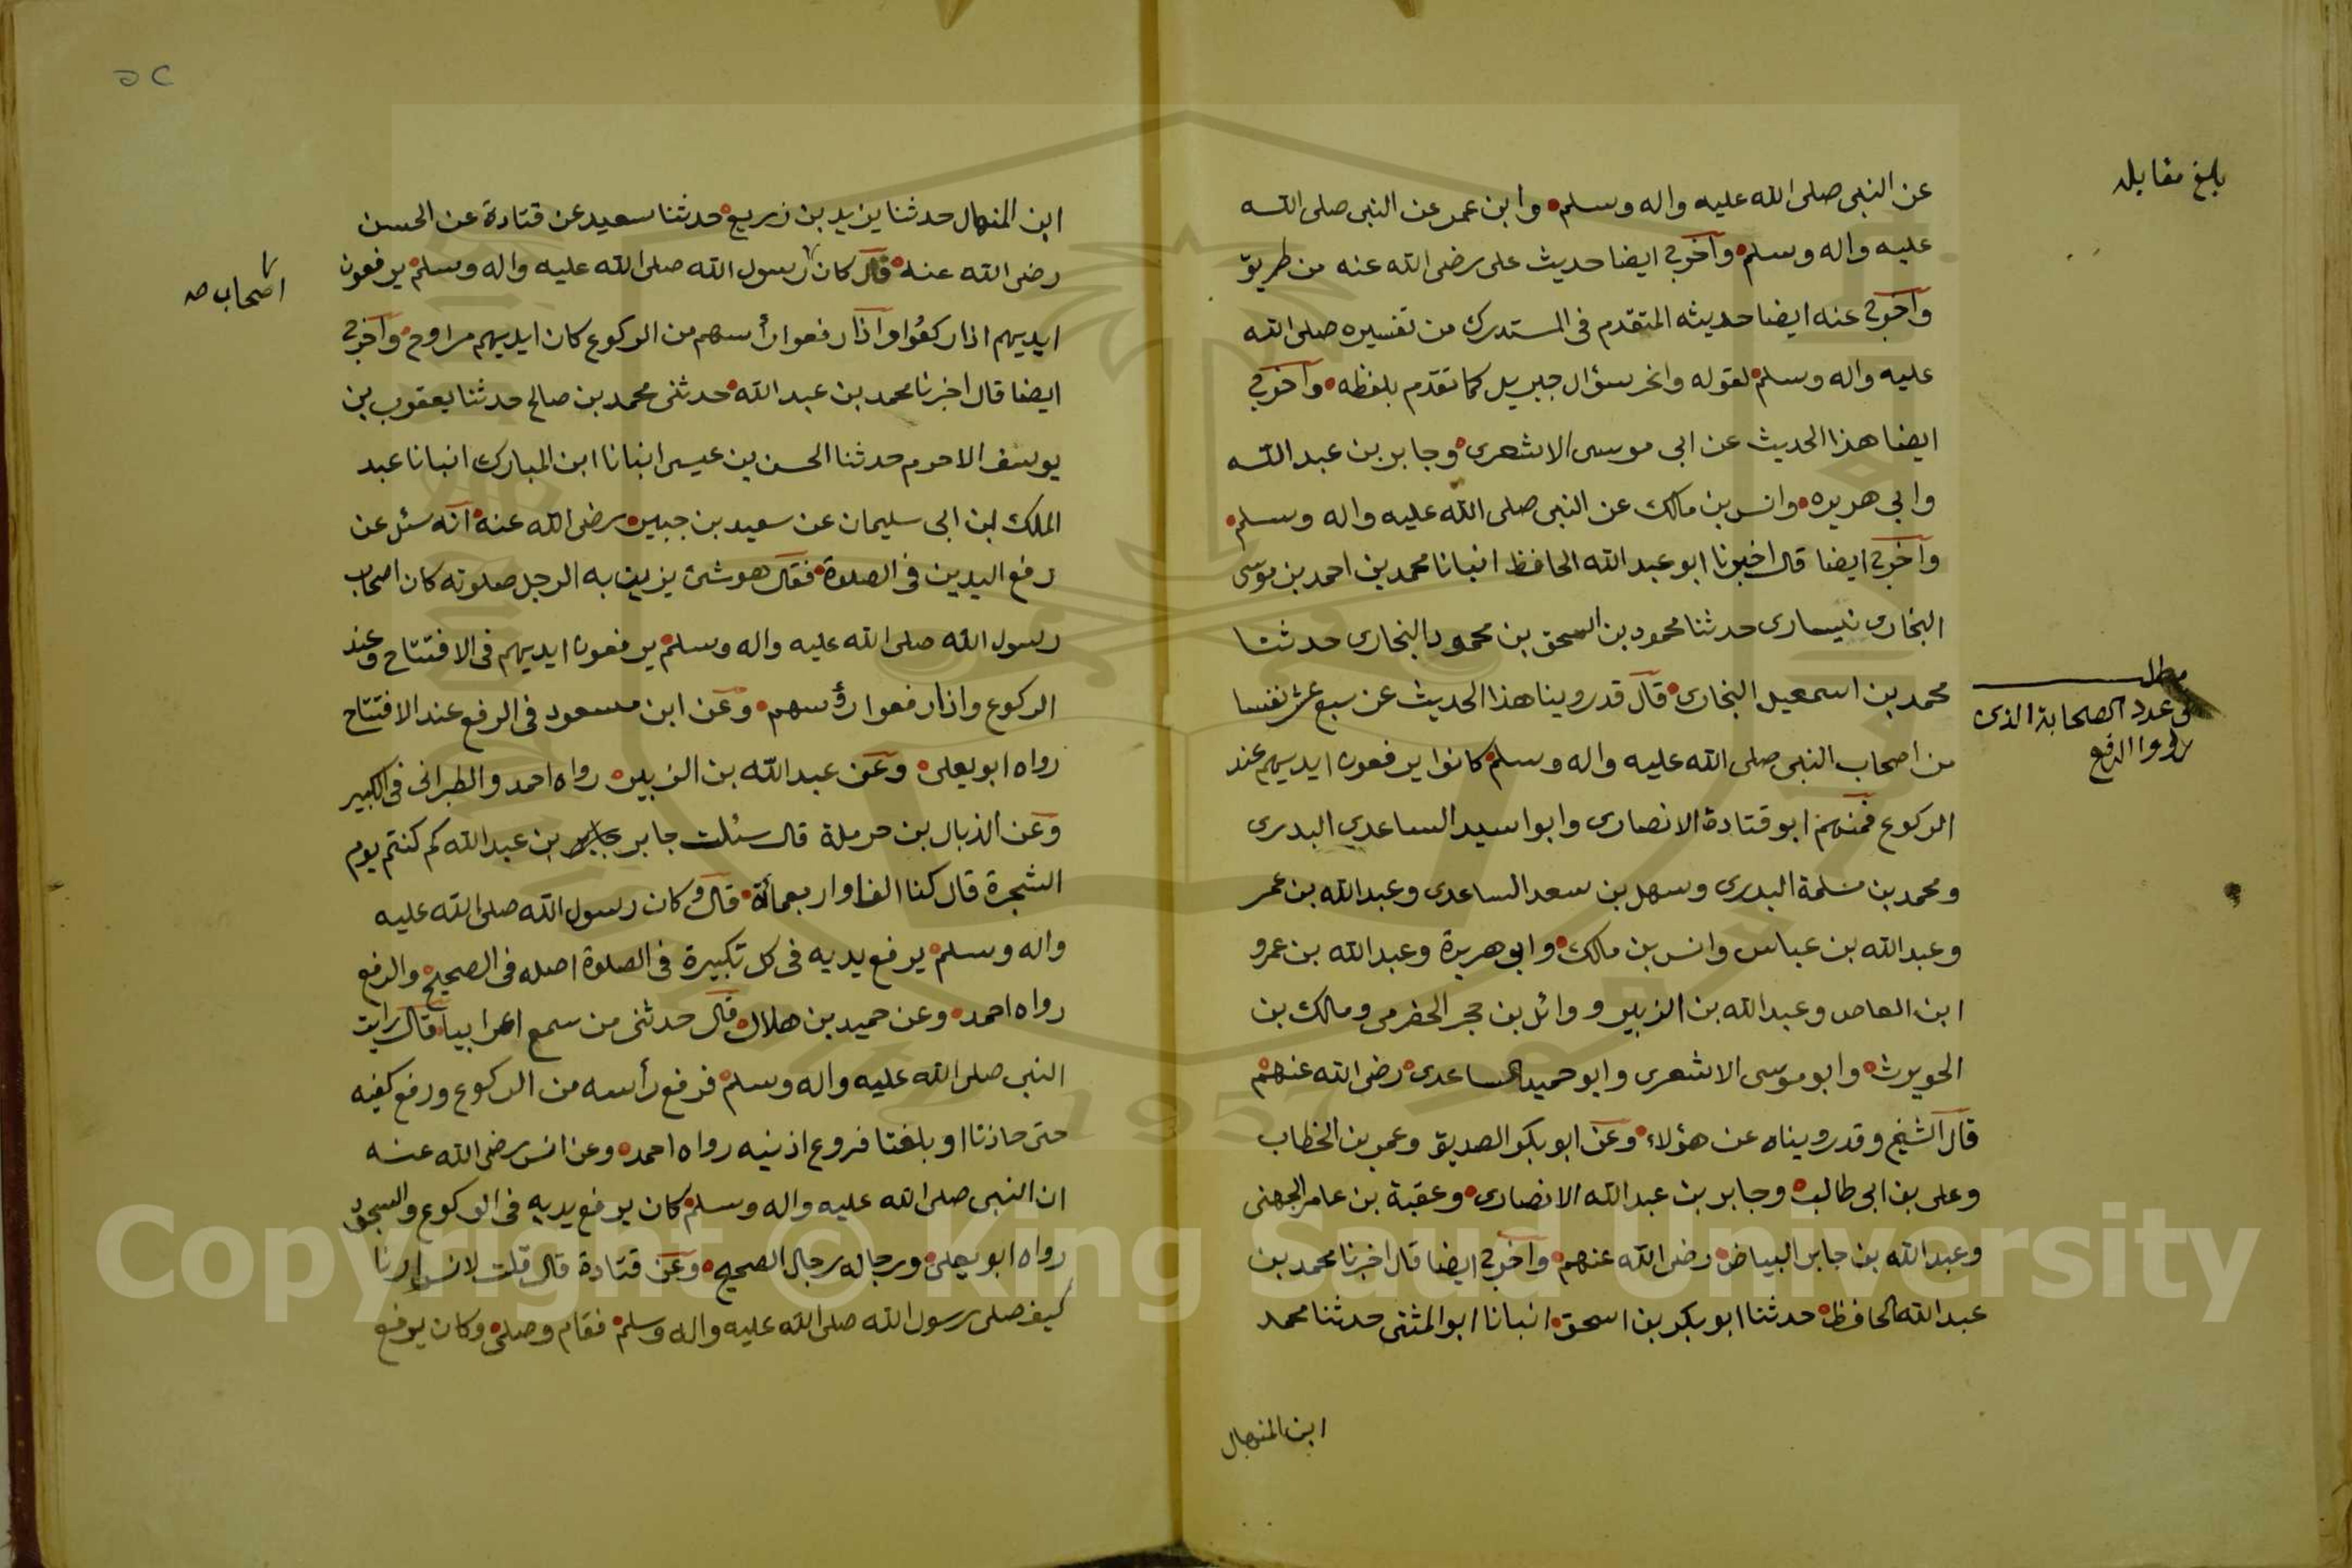 بلغ مقابله
عن النبى صلى الله عليه واله وسلم وابن عمر عن النبى صلى الله
عليه واله وسلم واخرج ايضا حديث على رضى الله عنه من طريق
واخرج عنه ايضا حديثه المتقدم فى المستدرك من تفسيره صلى الله
عليه واله وسلم لقوله وانحر سؤال جبريل كما تقدم بلفظه واخرج
ايضا هذا الحديث عن ابى موسى الاشعرى وجابر بن عبد الله
وابي هريره وانس بن مالك عن النبى صلى الله عليه واله وسلم
واخرج ايضا قال اخبرنا ابو عبد الله الحافظ انبانا محمد بن احمد بن موسى
البخارى حدثنا محمود بن اسحق بن محمود البخارى حدثنا
محمد بن اسمعيل البخارى قال قد روينا هذا الحديث عن سبع عشر نفسا
من اصحاب النبى صلى الله عليه واله وسلم كانوا يرفعون ايديهم عند
الركوع فمنهم ابو قتادة الانصارى وابو اسيد الساعدى البدرى
ومحمد بن مسلمة البدرى وسهل بن سعد الساعدى وعبد الله بن عمر
وعبد الله بن عباس وانس بن مالك وابو هريرة وعبد الله بن عمرو
ابن العاص وعبد الله بن الزبير ووائل بن حجر الحضرمى ومالك بن
الحويرث وابو موسى الاشعرى وابو حميد الساعدى رضى الله عنهم
قال الشيخ وقد رويناه عن هؤلاء وعن ابو بكر الصديق وعمر بن الخطاب
وعلى بن ابى طالب وجابر بن عبد الله الانصارى وعقبة بن عامر الجهنى
وعبد الله بن جابر البياض رضى الله عنهم واخرج ايضا قال اخبرنا محمد بن
عبد الله الحافظ حدثنا ابو بكر بن اسحق انبانا ابو المثنى حدثنا محمد
ابن المنهال
مطلب
فى عدد الصحابة الذى
رووا الرفع
ابن المنهال حدثنا يزيد بن زريع حدثنا سعيد عن قتادة عن الحسن
رضى الله عنه قال كان رسول الله صلى الله عليه واله وسلم يرفعون
اصحاب صه
ايديهم اذا ركعوا واذا رفعوا رأسهم من الركوع كان ايديهم مراوح واخرج
ايضا قال اخبرنا محمد بن عبد الله حدثنى محمد بن صالح حدثنا يعقوب بن
يوسف الاخرم حدثنا الحسن بن عيسى انبانا ابن المبارك انبانا عبد
الملك ابن ابى سليمان عن سعيد بن جبير رضى الله عنه انه سئل عن
رفع اليدين فى الصلوة فقال هو شئ يزين به الرجل صلوته كان اصحاب
رسول الله صلى الله عليه واله وسلم يرفعون ايديهم فى الافتتاح وعند
الركوع واذا رفعوا رؤسهم وعن ابن مسعود فى الرفع عند الافتتاح
رواه ابو يعلى وعن عبد الله بن الزبير رواه احمد والطبرانى فى الكبير
وعن الذيال بن حرملة قال سئلت جابر بن عبد الله كم كنتم يوم
الشجرة قال كنا الفا واربعمائة قال وكان رسول الله صلى الله عليه
واله وسلم يرفع يديه فى كل تكبيرة فى الصلوة اصله فى الصحيح والرفع
رواه احمد وعن حميد بن هلال قال حدثنى من سمع اعرابيا قال رايت
النبى صلى الله عليه واله وسلم فرفع رأسه من الركوع ورفع كفيه
حتى حاذتا او بلغتا فروع اذنيه رواه احمد وعن انس رضى الله عنه
ان النبى صلى الله عليه واله وسلم كان يرفع يديه فى الركوع والسجود
رواه ابو يعلى ورجاله رجال الصحيح وعن قتادة قال قلت لانس ارنا
كيف صلى رسول الله صلى الله عليه واله وسلم فقام وصلى وكان يرفع
Copyright © King Saud University
1957